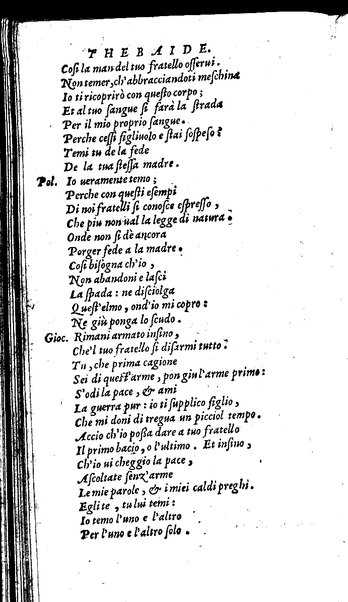 THEBAIDE.
Cosi la man del tuo fratello osserui.
Non temer, ch'abbracciandoti meschina
Io ti ricoprirò con questo corpo;
Et al tuo sangue si farà la strada
Per il mio proprio sangue.
Perche cessi figliuolo e stai sospeso?
Temi tu de la fede
De la tua stessa madre.
Pol. Io ueramente temo;
Perche con questi esempi
Di noi fratelli si conosce espresso,
Che piu non ual la legge di natura.
Onde non si dè ancora
Porger fede a la madre.
Cosi bisogna ch'io,
Non abandoni e lasci
La spada: ne disciolga
Quest'elmo, ond'io mi copro:
Ne giù ponga lo scudo.
Gioc. Rimani armato insino,
Che'l tuo fratello si disarmi tutto:
Tu, che prima cagione
Sei di quest'arme, pon giu l'arme prima:
S'odi la pace, & ami
La guerra pur: io ti supplico figlio,
Che mi doni di tregua un picciol tempo.
Accio ch'io possa dare a tuo fratello
Il primo bacio, o l'ultimo. Et insino,
Ch'io ui cheggio la pace,
Ascoltate senz'arme
Le mie parole, & i miei caldi preghi.
Egli te, tu lui temi:
Io temo l'uno e l'altro
Per l'uno e l'altro solo.